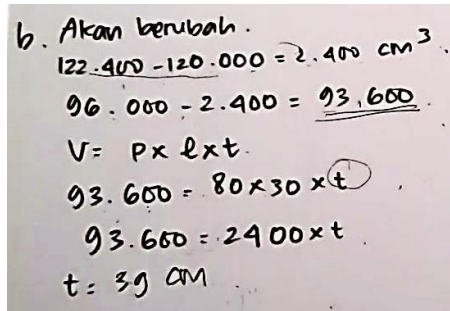 b. Akan berubah.
122.400 - 120.000 = 2.400 cm³.
96.000 - 2.400 = 93.600
V = p x l x t.
93.600 = 80 x 30 x t
93.600 = 2400 x t
t = 39 cm